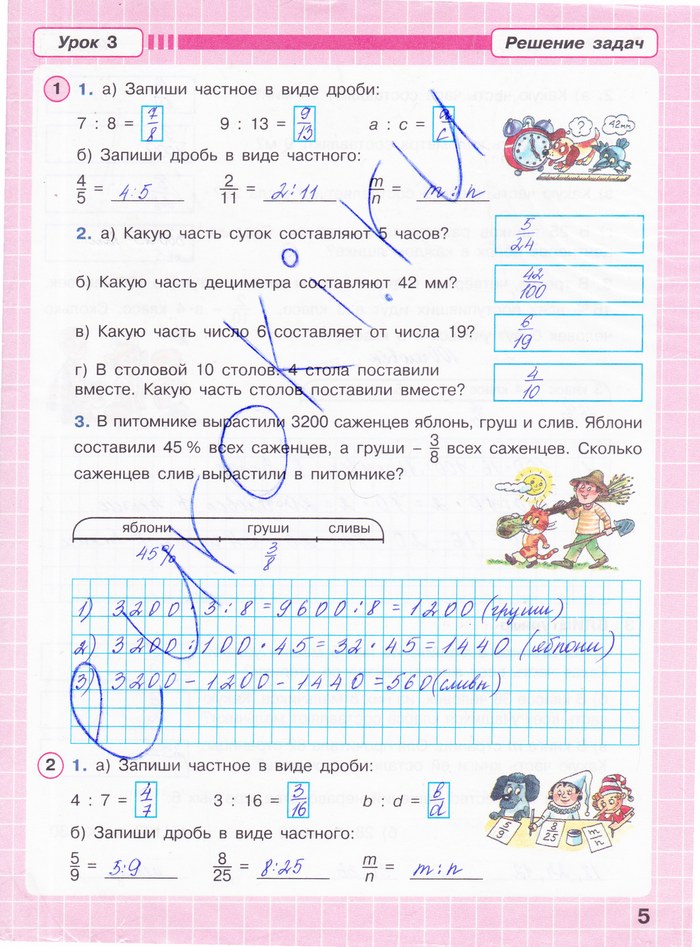 Урок 3
Решение задач
1 1. а) Запиши частное в виде дроби:
7 : 8 = 7/8 9 : 13 = 9/13 a : c = a/c
? 42мм
б) Запиши дробь в виде частного:
4/5 = 4:5 2/11 = 2:11 m/n = m:n
2. а) Какую часть суток составляют 5 часов? 5/24
б) Какую часть дециметра составляют 42 мм? 42/100
в) Какую часть число 6 составляет от числа 19? 6/19
г) В столовой 10 столов. 4 стола поставили
вместе. Какую часть столов поставили вместе? 4/10
3. В питомнике вырастили 3200 саженцев яблонь, груш и слив. Яблони
составили 45 % всех саженцев, а груши – 3/8 всех саженцев. Сколько
саженцев слив вырастили в питомнике?
яблони груши сливы
45% 3/8
1) 3200 · 3 : 8 = 9600 : 8 = 1200 (груши)
2) 3200 : 100 · 45 = 32 · 45 = 1440 (яблони)
3) 3200 – 1200 – 1440 = 560 (слив)
2 1. а) Запиши частное в виде дроби:
4 : 7 = 4/7 3 : 16 = 3/16 b : d = b/d
б) Запиши дробь в виде частного:
5/9 = 5:9 8/25 = 8:25 m/n = m:n
5